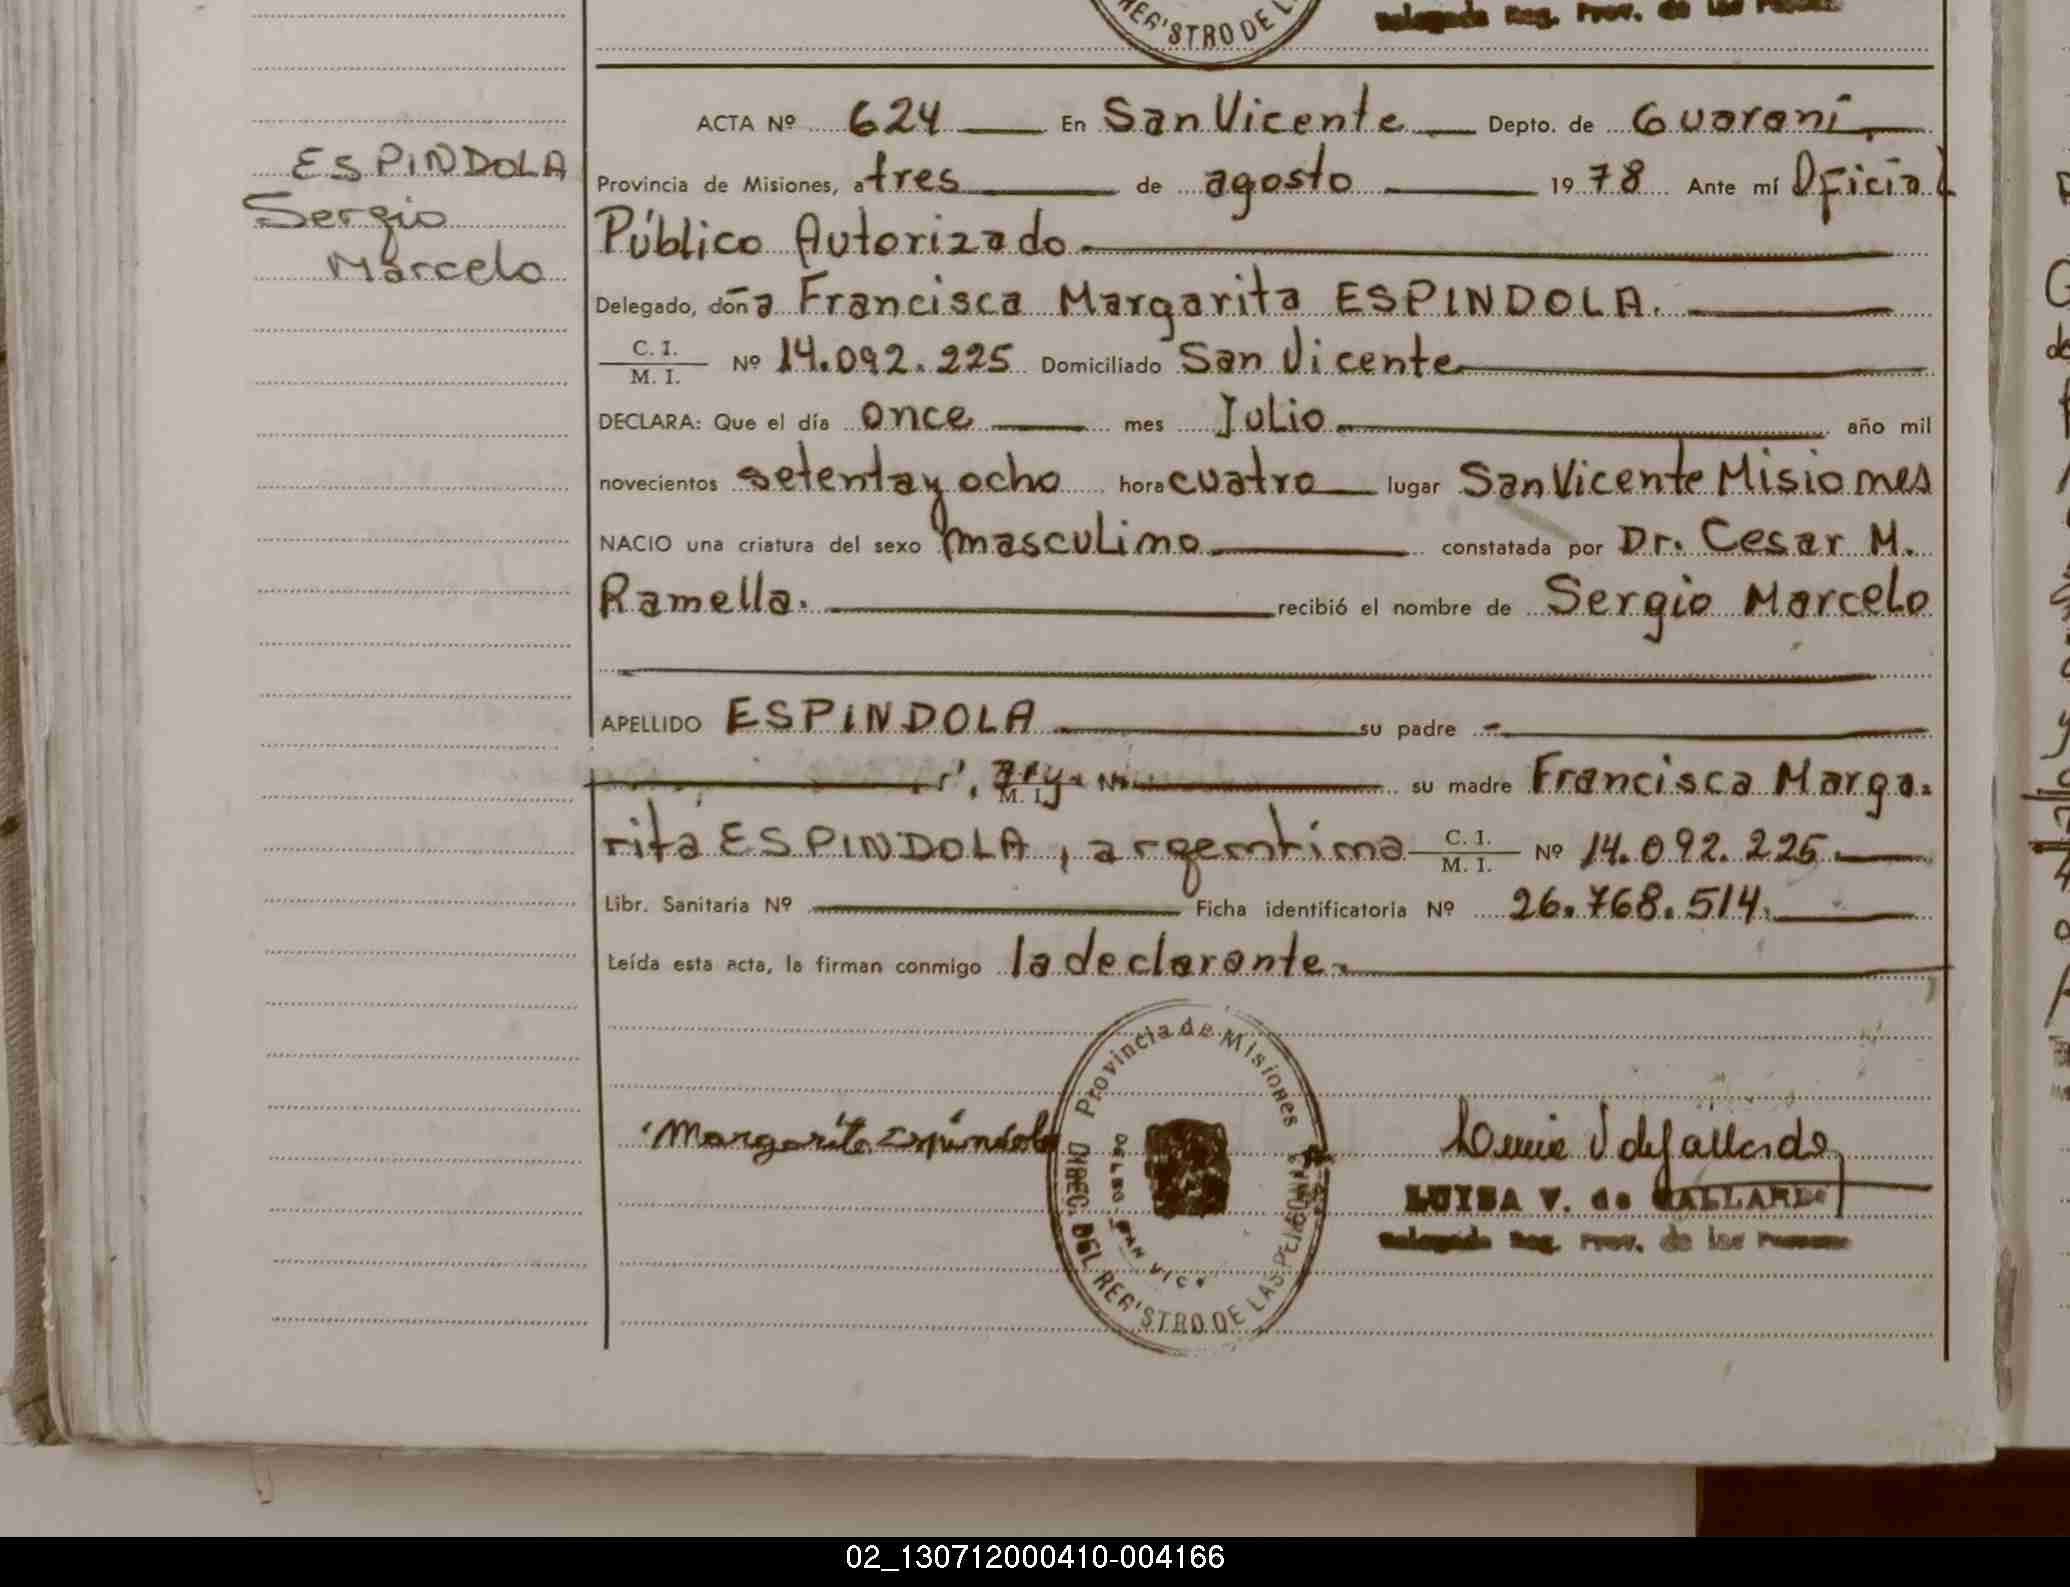 REG'STRO DE L
Delegada Reg. Prov. de las
ESPINDOLA
Sergio
Marcelo
ACTA Nº 624 En San Vicente Depto. de Guaraní
Provincia de Misiones, a tres de agosto 19 78 Ante mí Oficial
Público Autorizado
Delegado, doña Francisca Margarita ESPINDOLA.
C. I.
M. I. Nº 14.092.225 Domiciliado San Vicente
DECLARA: Que el día once mes Julio año mil
novecientos setenta y ocho hora cuatro lugar San Vicente Misiones
NACIO una criatura del sexo masculino constatada por Dr. Cesar M.
Ramella. recibió el nombre de Sergio Marcelo
APELLIDO ESPINDOLA su padre -
M. I. Nº su madre Francisca Marga-
rita ESPINDOLA, argentina C. I.
M. I. Nº 14.092.225.
Libr. Sanitaria Nº Ficha identificatoria Nº 26.768.514.
Leída esta acta, la firman conmigo la declarante.
Margarita Espindola
Provincia de Misiones
DIREC. DEL REG'STRO DE LAS PERSONAS
SAN VICE
Luisa V de Gallardo
LUISA V. de GALLARDO
Delegada Reg. Prov. de las Personas
02_130712000410-004166